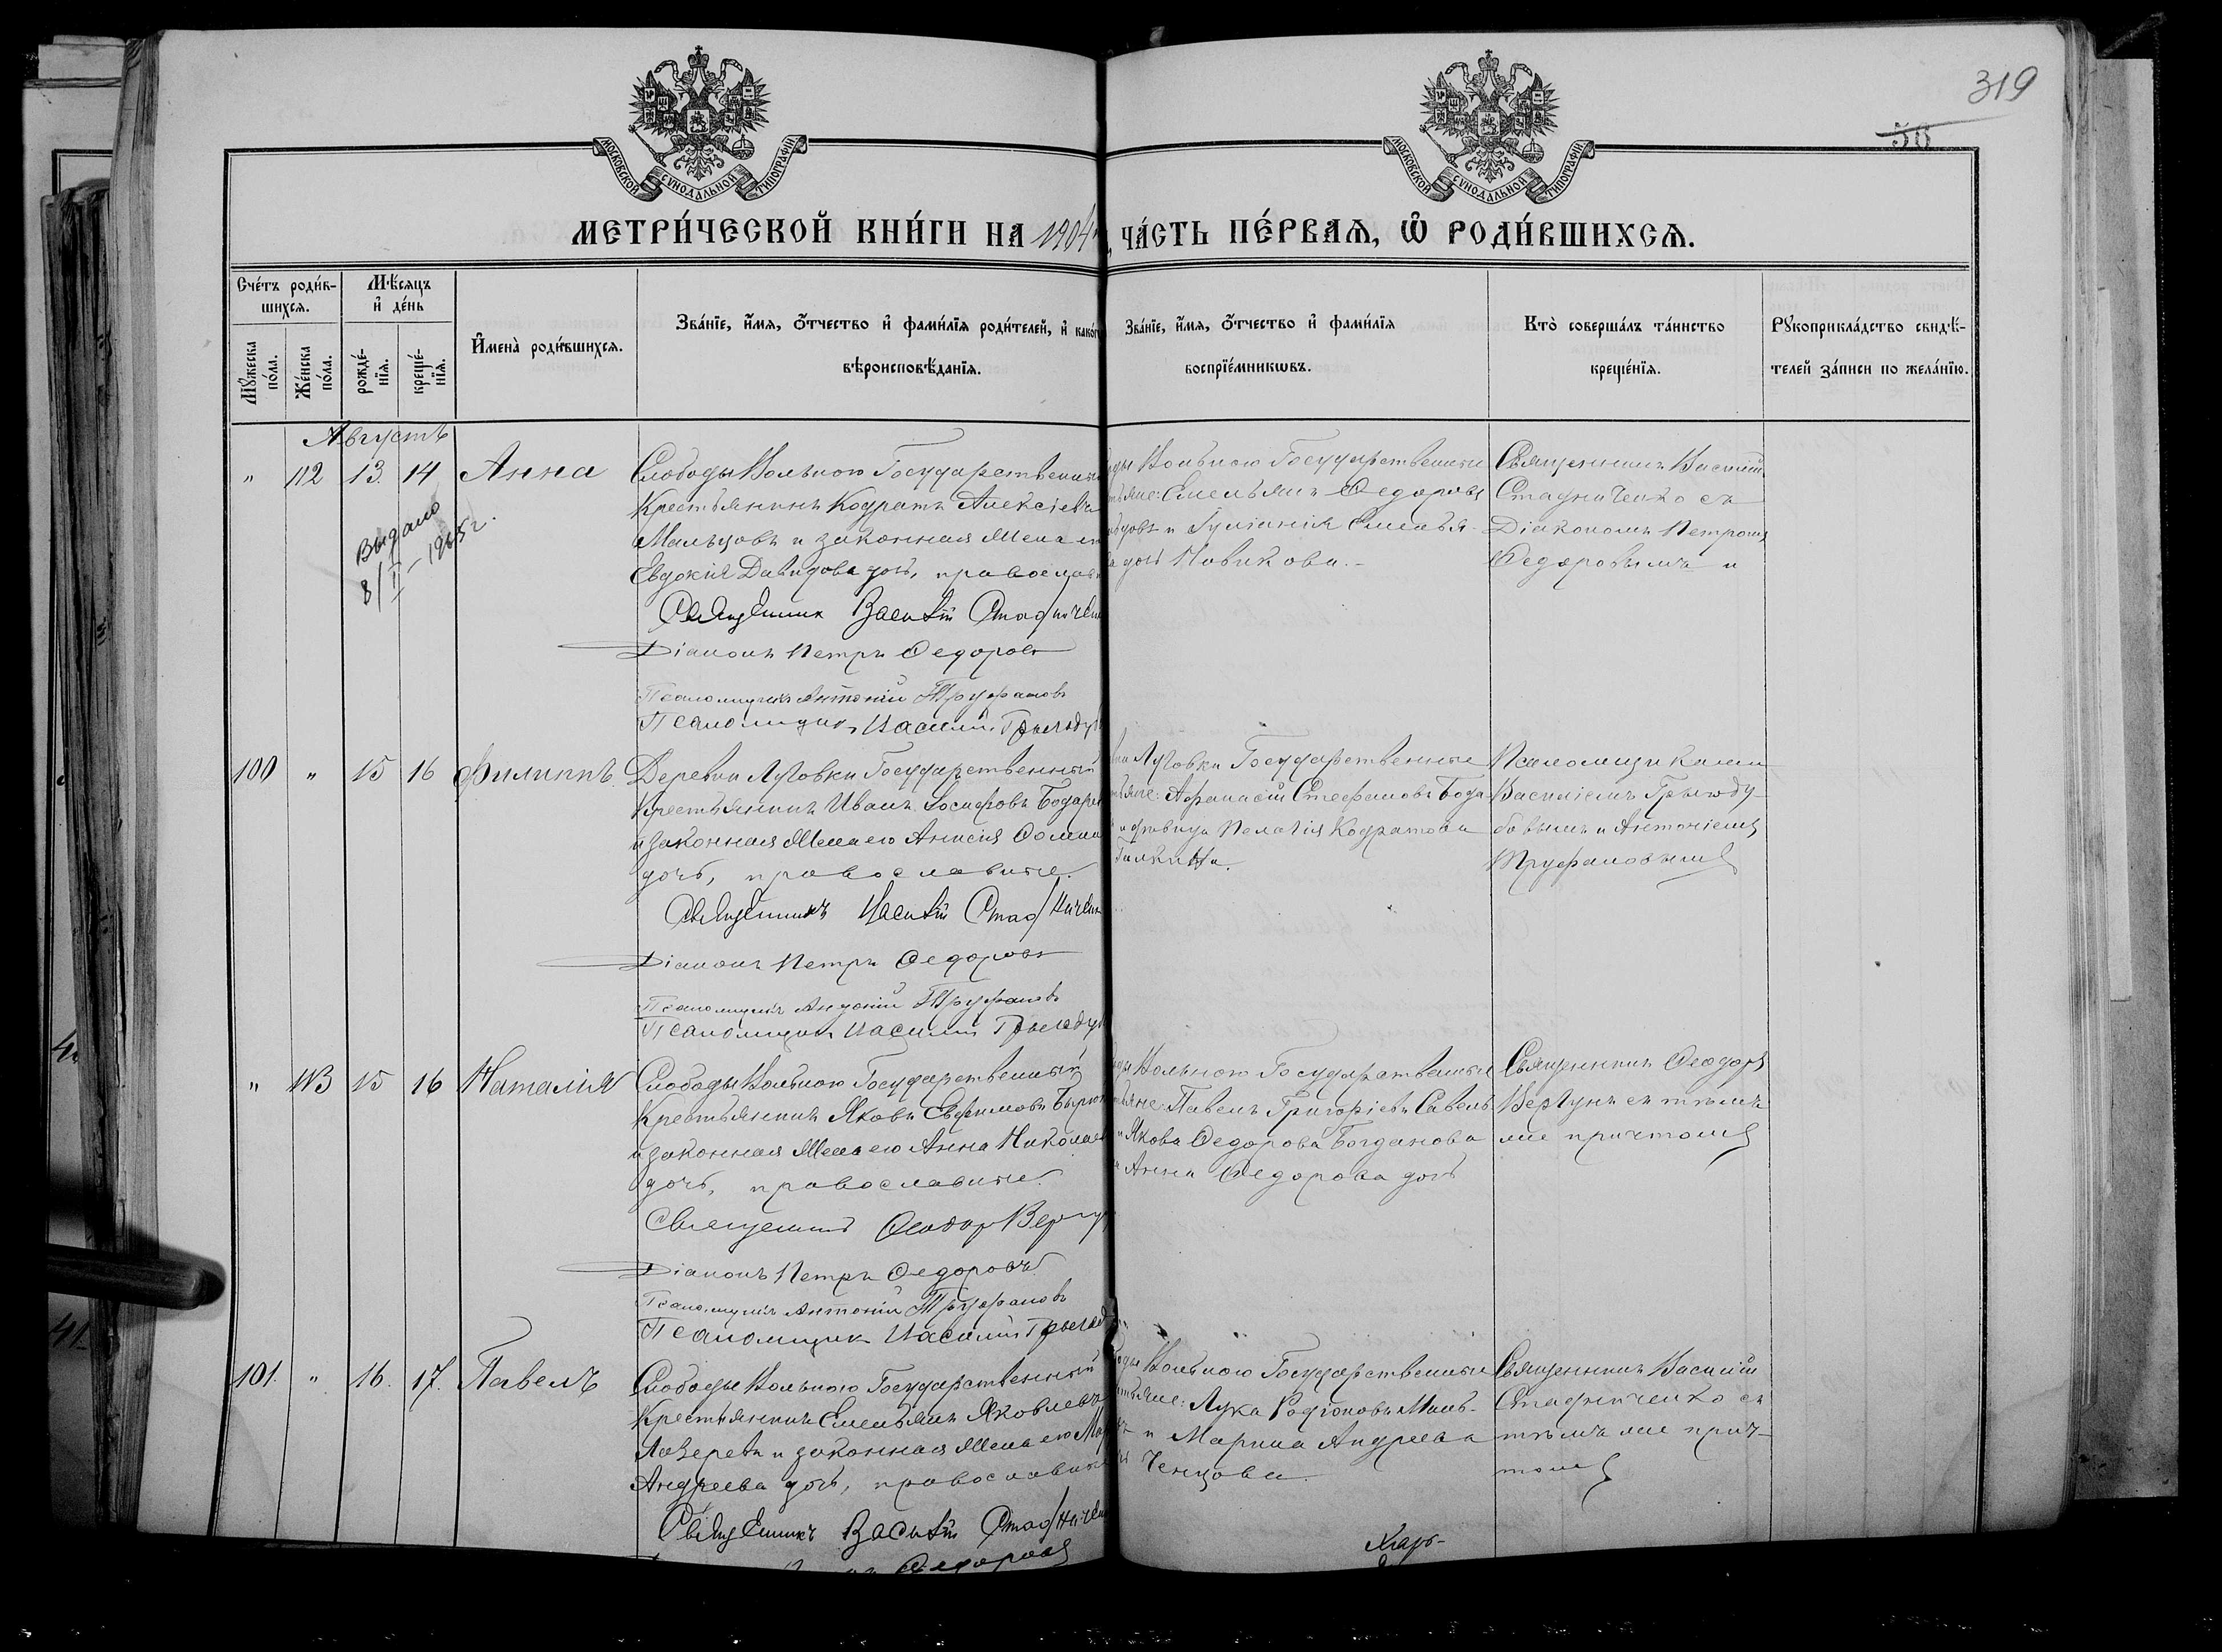 319
56
МОСКОВСКОЙ СѴНОДАЛЬНОЙ ТИПОГРАФІИ
МОСКОВСКОЙ СѴНОДАЛЬНОЙ ТИПОГРАФІИ
МЕТРИ́ЧЕСКОЙ КНИ́ГИ НА 1904
ЧА́СТЬ ПЕ́РВАѦ, Ѡ҆ РОДИ́ВШИХСѦ.
Сче́тъ роди́в-
шихсѧ.
Мꙋ́жеска по́ла.
Же́нска по́ла.
Мѣ́сѧцъ
и҆ де́нь
рожде́-
нїѧ.
креще́-
нїѧ.
И҆мена̀ роди́вшихсѧ.
Зва́нїе, и҆́мѧ, ѻ҆́тчество и҆ фами́лїѧ роди́телей, и҆ како́г
вѣроисповѣ́данїѧ.
Зва́нїе, и҆́мѧ, ѻ҆́тчество и҆ фами́лїѧ
воспрїе́мникѡвъ.
Кто̀ соверша́лъ та́инство
креще́нїѧ.
Рꙋкоприкла́дство свидѣ́-
телей за́писи по жела́нїю.
Августъ
" 112 13. 14 Анна
Выдано
8/II - 1965 г.
Слободы Вольного Государственный
Крестьянинъ Кодратъ Алексіевъ
Мальцовъ и законная жена его
Евдокія Давидова дочь, православн
Священникъ Василій Стадниченк
Діаконъ Петръ Федоровъ
Псаломщикъ Антоній Труфановъ
Псаломщикъ Василій
ды Вольного Государственные
тьяне: Емельянъ Федоровъ
и Іуліанія Емелья-
а дочь Новикова.-
Священникъ Василій
Стадниченко съ
Діакономъ Петромъ
Федоровымъ и
100 " 15 16 Филиппъ
Деревни Луговки Государственный
Крестьянинъ Иванъ Іосифовъ
и законная жена его Анисія
дочь, православные.
Священникъ Василій Стадничен
Діаконъ Петръ Федоровъ
Псаломщикъ Антоній Труфановъ
Псаломщикъ Василій
ни Луговки Государственные
тьяне: Афанасій Стефановъ Бода-
и дѣвица Пелагія Кодратова
Галкина.
Псаломщиками
Василіемъ
и Антоніемъ
Труфановымъ
" 113 15 16 Наталія
Слободы Вольного Государственный
Крестьянинъ Яковъ Ефимовъ
и законная жена его Анна Николаев
дочь, православные.
Священникъ Феодоръ Вергун
Діаконъ Петръ Федоровъ
Псаломщикъ Антоній Труфановъ
Псаломщикъ Василій
ды Вольного Государственные
тьяне: Павелъ Григоріевъ Савель
и Якова Федорова Богданова
Анна Федорова дочь
Священникъ Феодоръ
Вергунъ съ тѣмъ
же причтомъ
101. " 16. 17. Павелъ
Слободы Вольного Государственный
Крестьянинъ Емельянъ Яковлевъ
Лазеревъ и законная жена его
Андреева дочь, православные
Священникъ Василій Стадничен
Федоровъ
оды Вольного Государственные
тьяне: Лука Родіоновъ Маль-
и Марина Андреева
Ченцова.
Священникъ Василій
Стадниченко съ
тѣмъ же прич-
томъ
Харь-